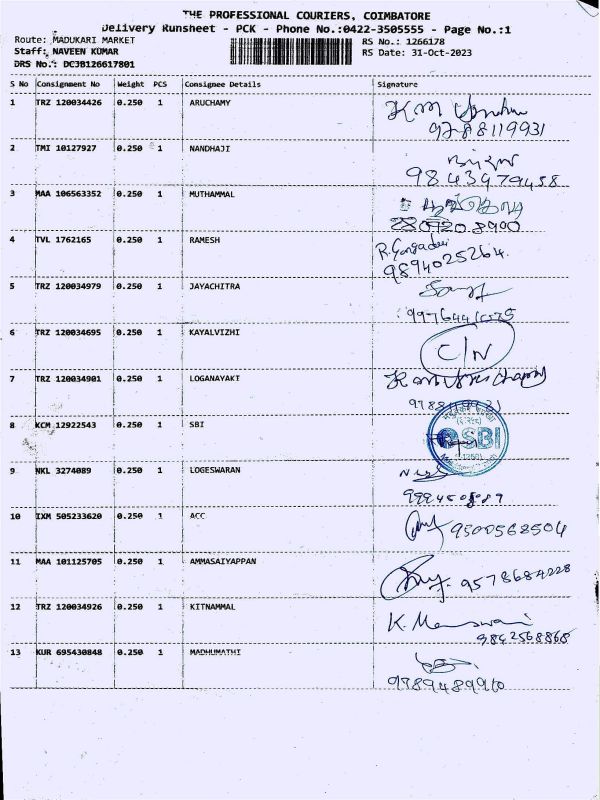 THE PROFESSIONAL COURIERS, COIMBATORE
Delivery Runsheet - PCK - Phone No.:0422-3505555 - Page No.:1
Route: MADUKARI MARKET
RS No.: 1266178
Staff: NAVEEN KUMAR
RS Date: 31-Oct-2023
DRS No.: DCJB126617801
S No Consignment No Weight PCS Consignee Details Signature
1 TRZ 120034426 0.250 1 ARUCHAMY
9788119931
2 TMI 10127927 0.250 1 NANDHAJI
9843979458
3 MAA 106563352 0.250 1 MUTHAMMAL
4 TVL 1762165 0.250 1 RAMESH
9894025264.
5 TRZ 120034979 0.250 1 JAYACHITRA
6 TRZ 120034695 0.250 1 KAYALVIZHI
C/N
7 TRZ 120034901 0.250 1 LOGANAYAKI
8 KCM 12922543 0.250 1 SBI
SBI
9 NKL 3274089 0.250 1 LOGESWARAN
10 IXM 505233620 0.250 1 ACC
9500568504
11 MAA 101125705 0.250 1 AMMASAIYAPPAN
9578684228
12 TRZ 120034926 0.250 1 KITNAMMAL
9842568868
13 KUR 695430848 0.250 1 MADHUMATHI
9789489910